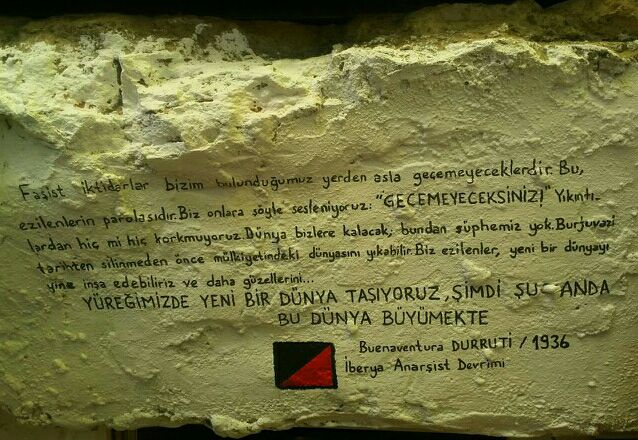 Faşist iktidarlar bizim bulunduğumuz yerden asla geçemeyeceklerdir. Bu,
ezilenlerin parolasıdır. Biz onlara şöyle sesleniyoruz: "GEÇEMEYECEKSİNİZ!" Yıkıntı-
lardan hiç mi hiç korkmuyoruz. Dünya bizlere kalacak; bundan şüphemiz yok. Burjuvazi
tarihten silinmeden önce mülkiyetindeki dünyasını yıkabilir. Biz ezilenler, yeni bir dünyayı
yine inşa edebiliriz ve daha güzellerini...
YÜREĞİMİZDE YENİ BİR DÜNYA TAŞIYORUZ, ŞİMDİ ŞU ANDA
BU DÜNYA BÜYÜMEKTE
Buenaventura DURRUTİ / 1936
İberya Anarşist Devrimi